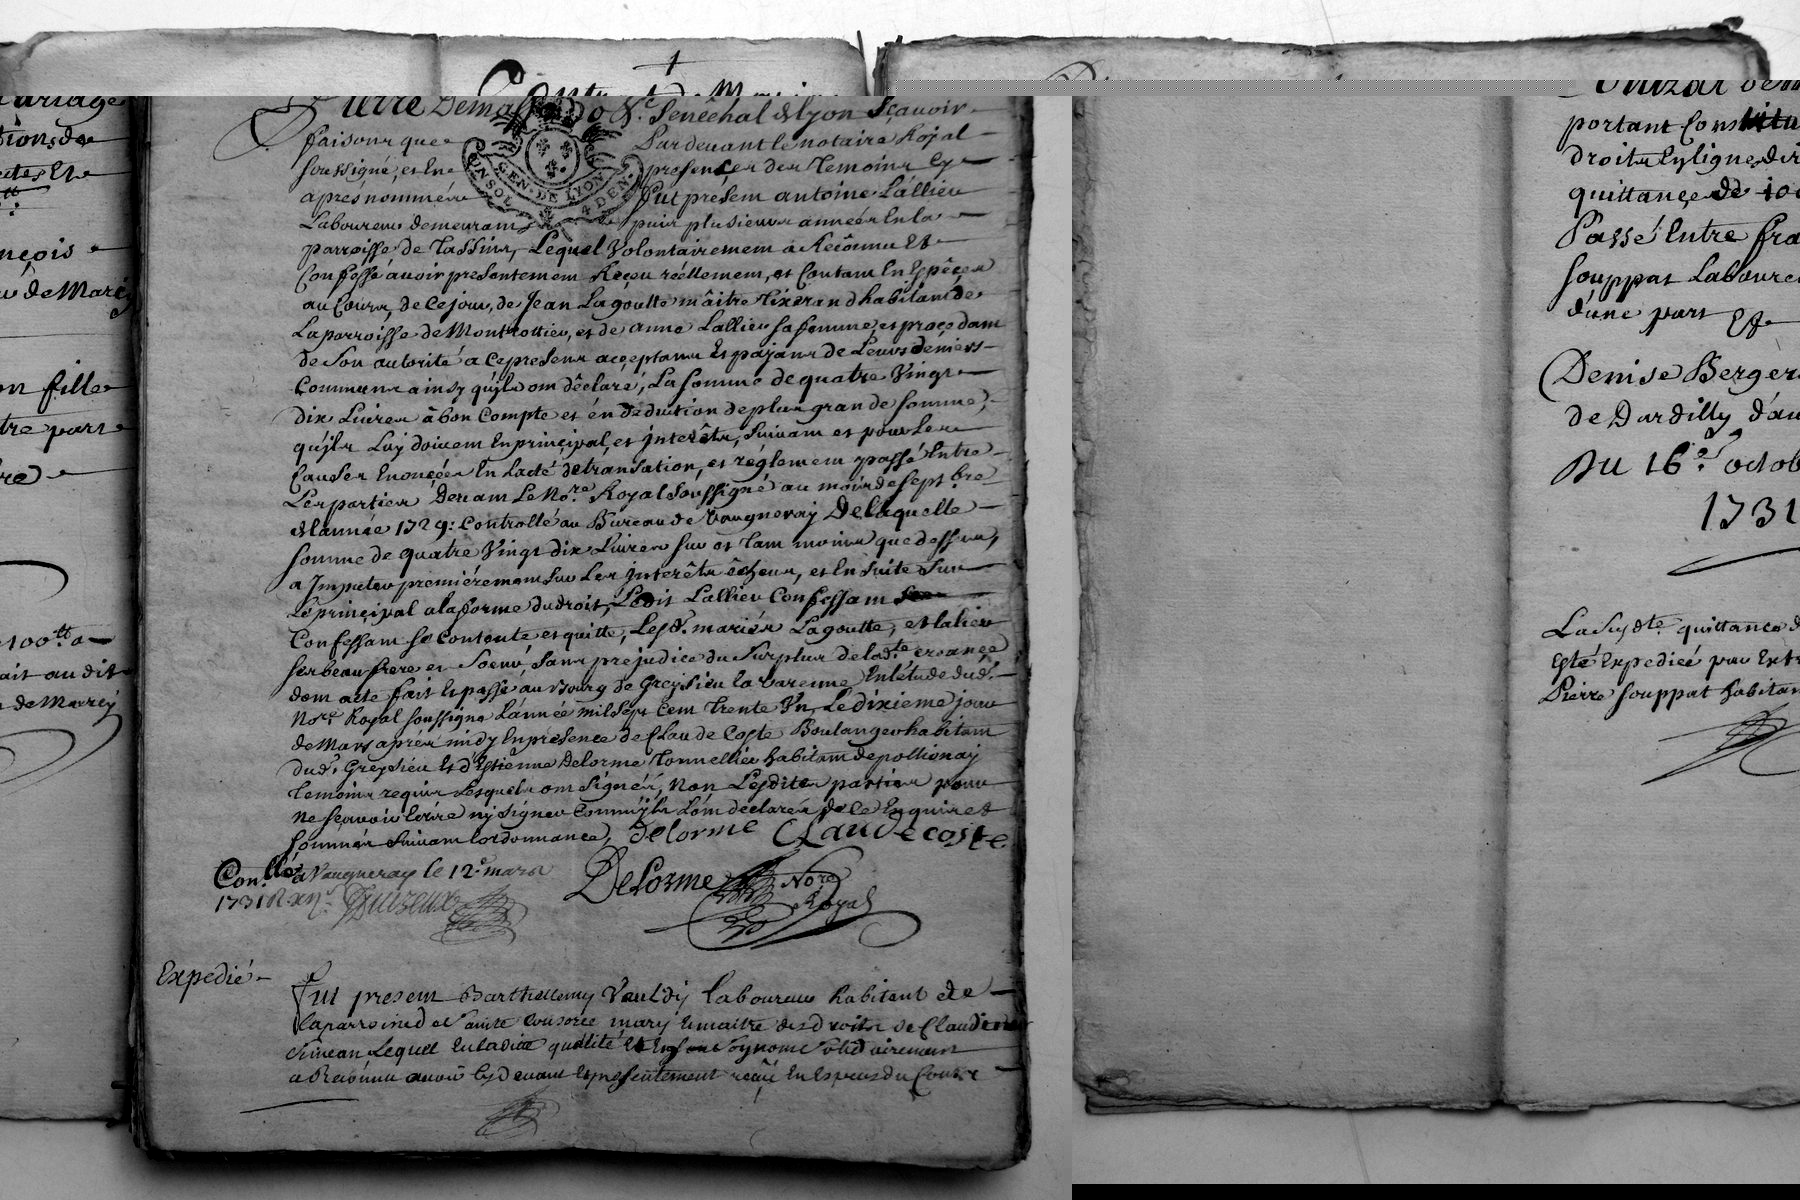 ariage
tions de
nçois
u de Marcy
on fille
tre part
re
100tt a
ait au dit
de Marcy
Pierre Demas do Sr. Senêchal de lyon Sçavoir
faisons que Pardevant le notaire Royal
soussigné, et en presences des temoins cy
aprés nommés fut présent antoine Lallieu
Laboureur demeurant depuis plusieurs années en la
parroisse de Tassins, Lequel Volontairement a Reconnu Et
Confesse avoir presentement Reçeu réellement, et Contant En Espêces
au Cours, de ce jour, de Jean Lagoutte mâitre tixerand habitant de
La parroisse de Montrottier, et de anne Lallieu sa femme, et procedant
de son autorité a ce presents acceptants Et payant de Leurs deniers
Communs ainsy quils ont déclaré, La somme de quatre Vingt
dix Livres à bon Compte et en deduction de plus grande somme,
quils Luy doivent En principal, et interêts, suivant et pour les
Causes Enoncées En L'acte de transation, et réglement passé Entre
Les parties Devant Le Nore. Royal soussigné au mois de septbre
de Lannée 1729: Controllé au Bureau de Vaugneray De laquelle
somme de quatre Vingt dix Livres sur et tant moins que dessus,
a Imputer premiérement sur Les interêts êcheus, et En suite sur
Le principal a la forme du droit, Ledit Lallieu Confessant
Confessant se contente et quitte, Lesd. mariés Lagoutte, et Lalieu
ses beau frere et soeur, sans prejudice du surplus de ladte. creance
dont acte fait Et passé au Bourg de Greysieu la varenne En létude dud.
Nore. Royal soussigné Lannée mil sept Cent trente Un, Le dixieme jour
de Mars aprés midy En presence de Claude Coste Boulanger habitant
dud. Greysieu Et d'Estienne Delorme Tonnellier habitant de pollionay
temoins requis Lesquels ont signés, Non Lesdites parties pour
ne sçavoir Ecrire ny signer Comme ils L'ont declarés de ce Enquis et
sommés suivant lordonnance, delorme CLAUDE COSTE
Con.llé a Vaugneray le 12e. mars
1731
Delorme Nore
Royal
Expedié
Fut present Barthellemy Vauldy laboureur habitant de
la parroisse de Sainte Consorce mary Et maitre des Droits de Claudine
Simean Lequel En ladite qualité Et En son Soy nom solidairement
a Reconnu avoir Cy devant Et presentement reçû En Espèces du Cours
portant Constitu
droits Ey lignes dir
quittance de 100
Passé Entre fra
souppat Laboure
d'une part Et
Denise Berger
de Dardilly d'au
Du 16e. octob
1731
La Susdte. quittance d
Esté Expediée par Extr
Pierre souppat habitan